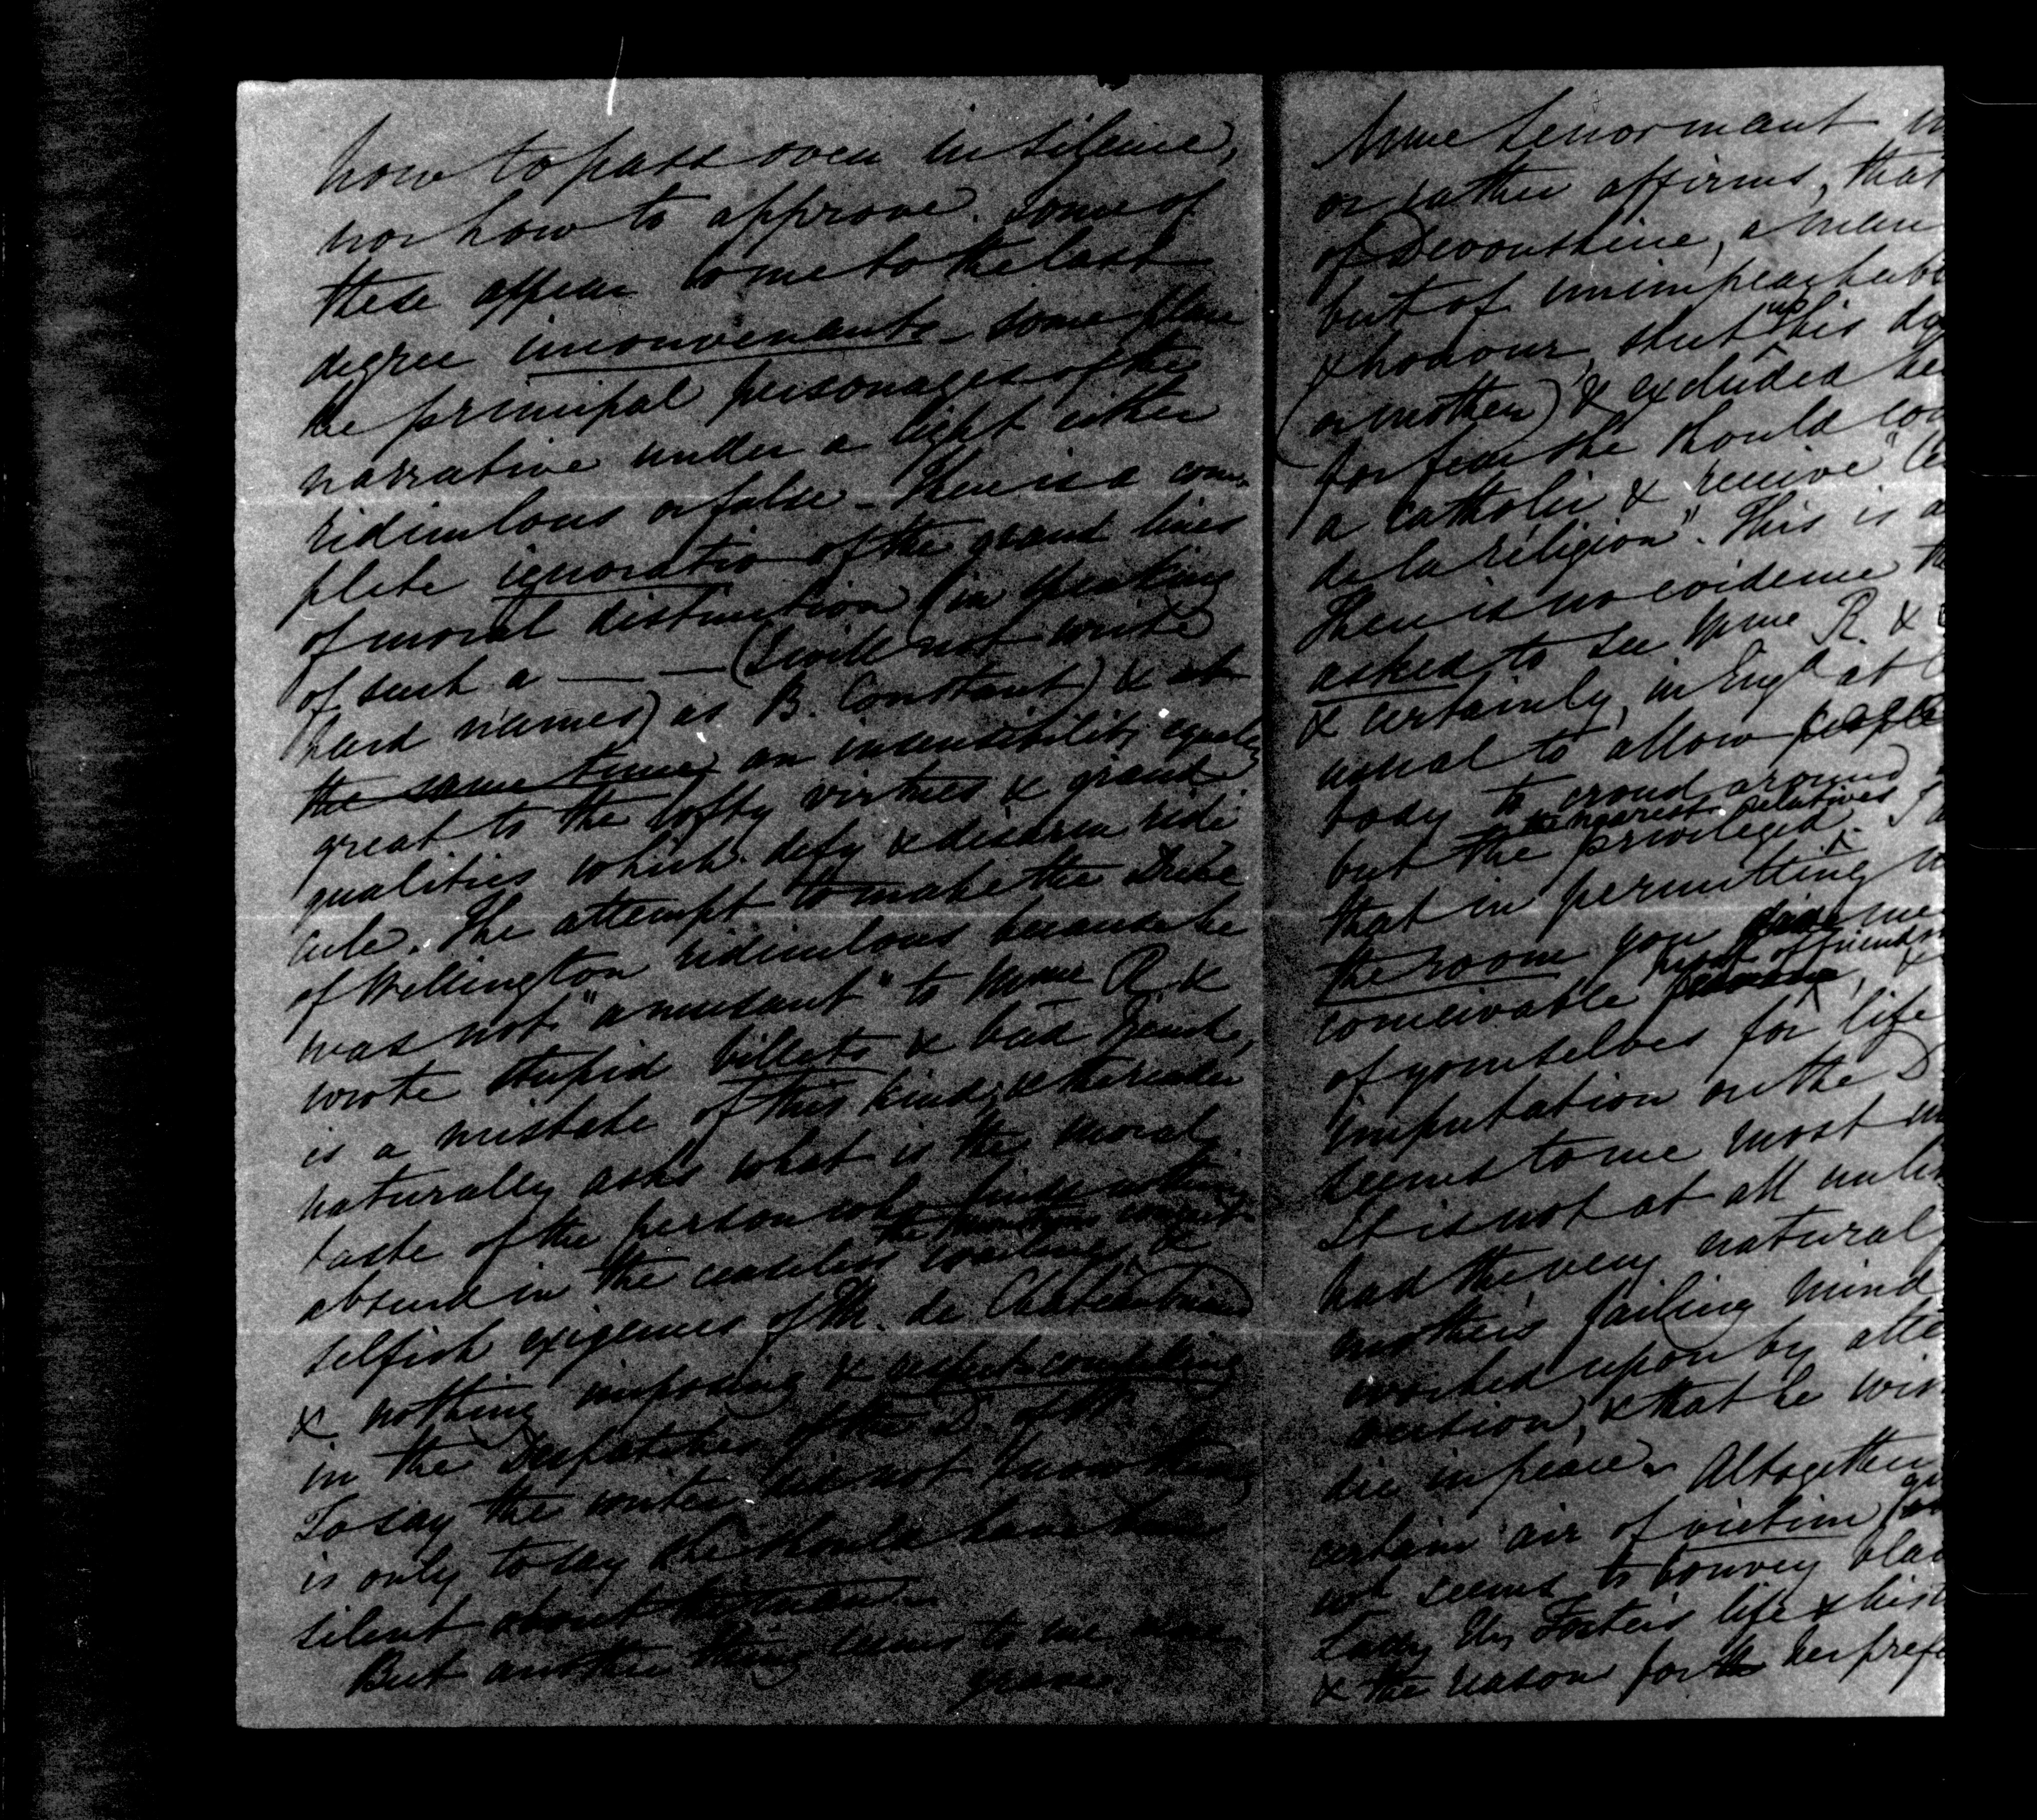 how to pass over in silence,
nor how to approve. Some of
these appear to me to the last
degree inconvenants – some place
the principal personages of the
narrative under a light either
ridiculous or false – There is a com-
plete ignoratio of the grand lines
of moral distinction (in speaking
of such a — — (I will not write
hard names) as B. Constant) & at
the same time an insensibility equally
great to the lofty virtues & grand
qualities which defy & disarm ridi
cule. The attempt to make the Duke
of Wellington ridiculous because he
was not "amusant" to Mme R &
wrote stupid billets & bad French,
is a mistake of this kind; & the reader
naturally asks what is the moral
taste of the person who finds nothing
absurd in the ceaseless &
selfish exigences of M. de Chateaubriand
& nothing imposing & respect-compelling
in the Despatches of the D. of W.
To say the writer did not know them
is only to say she should have been
silent about
But another thing seems to me more
grave
Mme Lenormant
or rather affirms, that
of Devonshire, a man
but of unimpeachab
& honour, shut up his dy
(or mother) & excluded he
for fear she should
a Catholic & receive "
de la religion". This is a
There is no evidence th
asked to see Mme R. &
& certainly, in Engd at
usual to allow people
body to croud around
but the privileged the nearest relatives. I
that in permitting
the room you give me
conceivable proof of friends
of yourselves for life
imputation on the D
seems to me most
It is not at all
had the very natural
mother's failing mind
worked upon by
& that he
die in peace. Altogether
certain air of victim
wh seems to convey bla
Lady Eliz Foster's life & hist
& the reason for her prefe